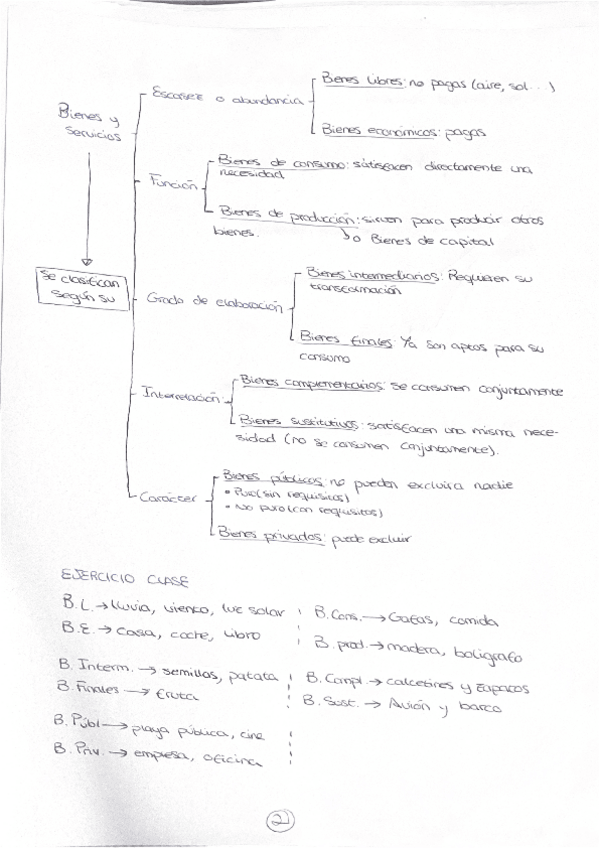 Bienes y
servicios
se clasifican
según su
Escasez o abundancia
Bienes libres: no pagas (aire, sol...)
Bienes económicos: pagas
Función
Bienes de consumo: satisfacen directamente una
necesidad
Bienes de producción: sirven para producir otros
bienes.
o Bienes de capital
Grado de elaboración
Bienes intermediarios: Requieren su
transformación
Bienes finales: Ya son aptos para su
consumo
Interrelación
Bienes complementarios: se consumen conjuntamente
Bienes sustitutivos: satisfacen una misma nece-
sidad (no se consumen conjuntamente).
Carácter
Bienes públicos: no pueden excluir a nadie
• Puro (sin requisitos)
• No puro (con requisitos)
Bienes privados: puede excluir
EJERCICIO CLASE
B.L. → lluvia, viento, luz solar
B.E. → casa, coche, libro
B. Cons. → Gafas, comida
B. prod. → madera, bolígrafo
B. Interm. → semillas, patata
B. Finales → fruta
B. Compl. → calcetines y zapatos
B. Sust. → Avión y barco
B. Públ → playa pública, cine
B. Priv. → empresa, oficina
2